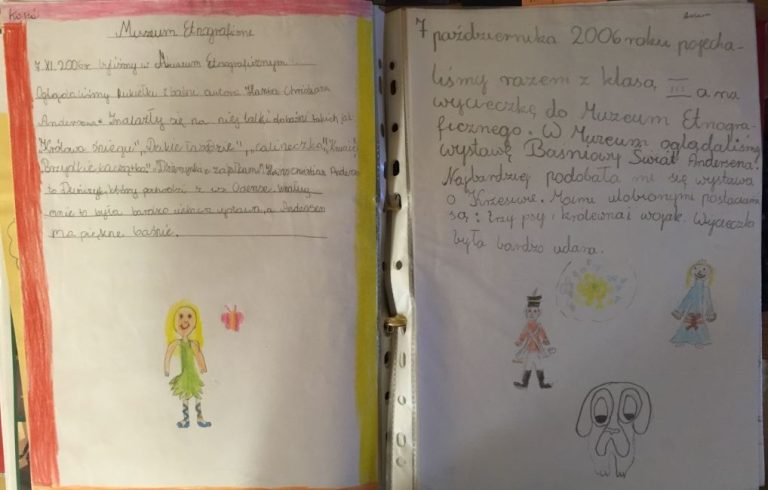 Kasia
Muzeum Etnograficzne
7 XI 2006r byliśmy w Muzeum Etnograficznym.
Oglądaliśmy kukiełki z baśni autora Hansa Christiana
Andersena. Znalazły się na niej lalki do baśni takich jak:
"Królowa śniegu", "Dzikie łabędzie", "Calineczka",
"Brzydkie kaczątko", "Dziewczynka z zapałkami". Hans Christian Andersen
to Duńczyk, który pochodzi z wsi Odense. Według
mnie to była bardzo ciekawa wystawa, a Andersen
ma piękne baśnie.
7 października 2006 roku pojecha-
liśmy razem z klasą III a na
wycieczkę do Muzeum Etnogra-
ficznego. W Muzeum oglądaliśmy
wystawę Baśniowy Świat Andersena.
Najbardziej podobała mi się wystawa
o Krzesiwie. Moimi ulubionymi postaciami
są: trzy psy i królewna i wojak. Wycieczka
była bardzo udana.